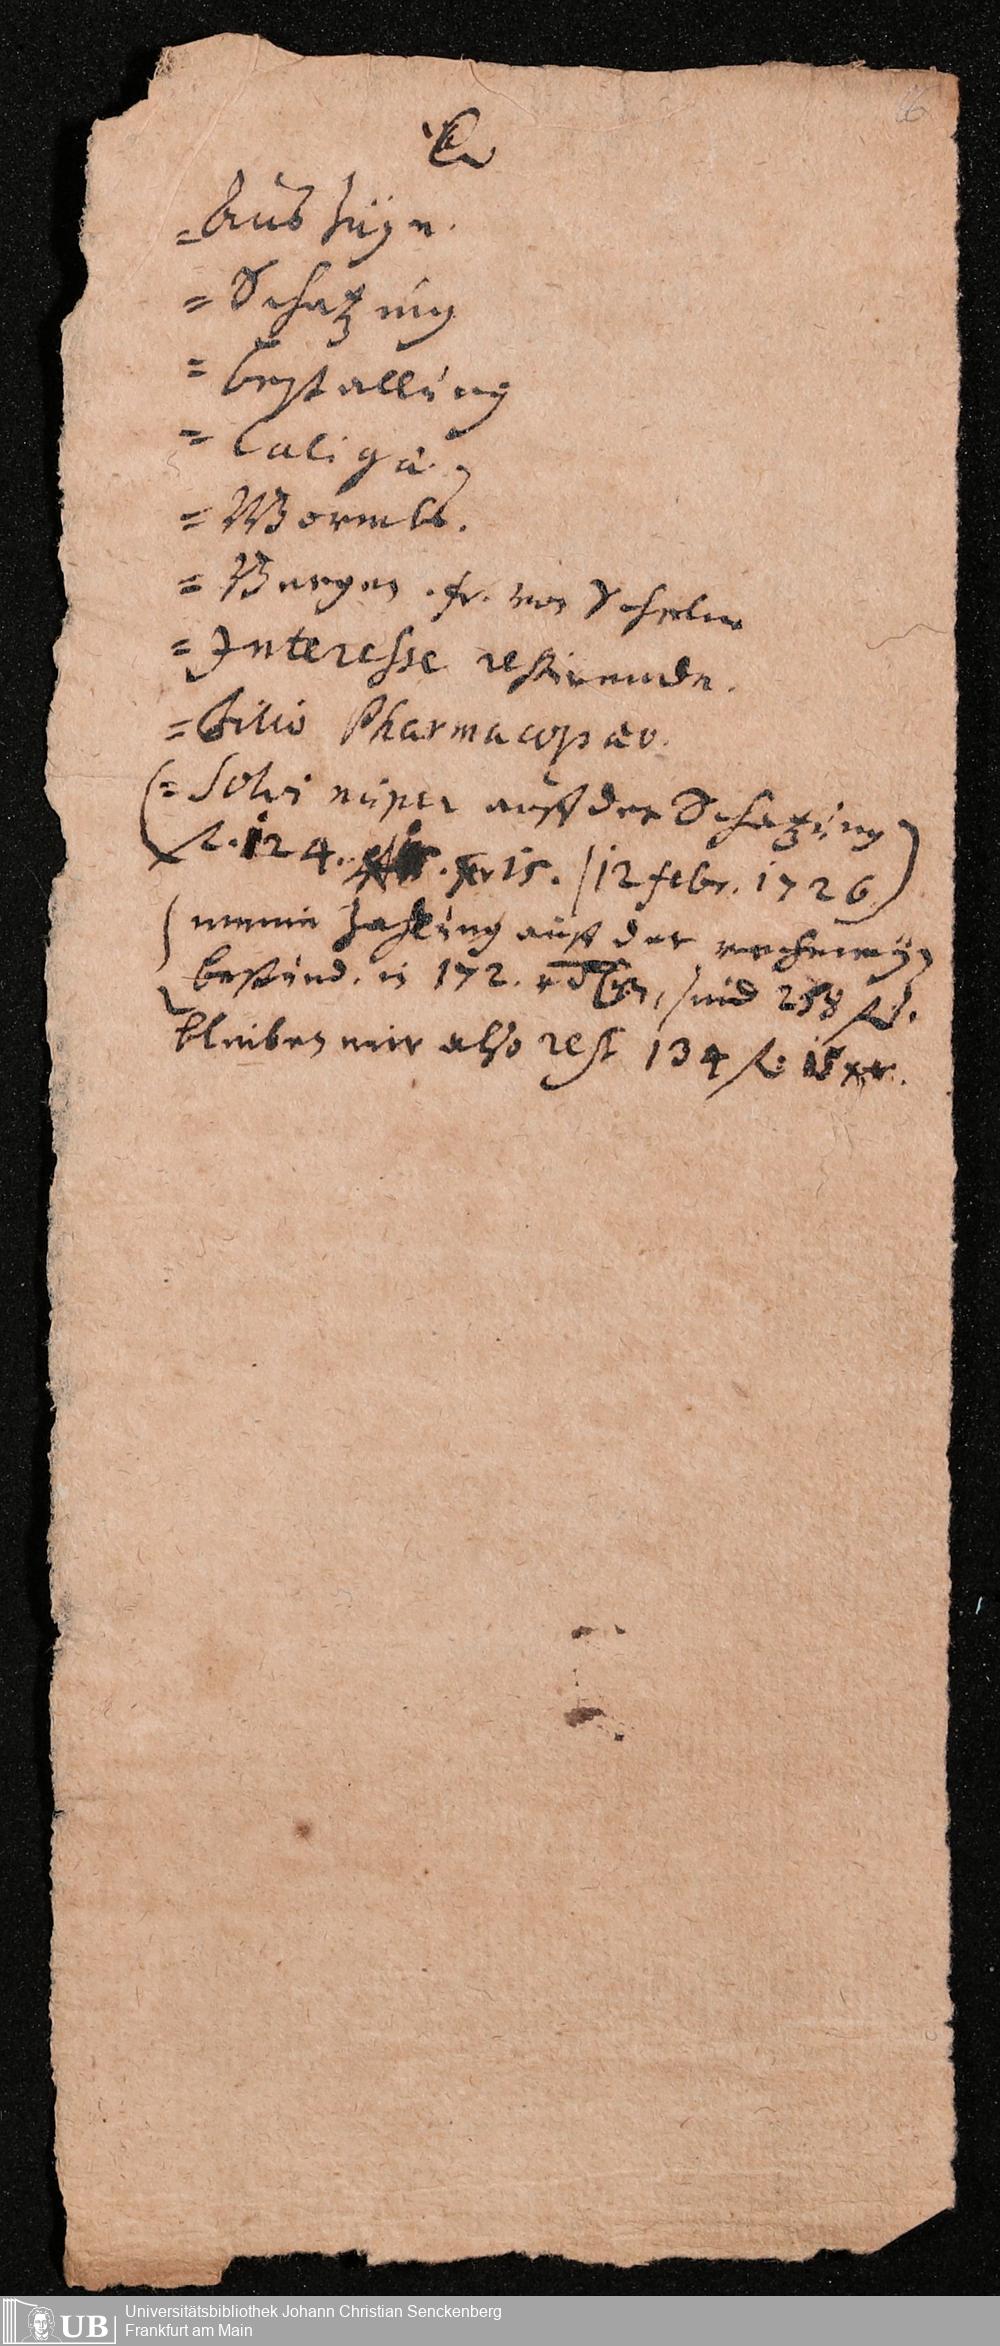 6
= Auszüge.
= Schatzung
= Bestallung
= Caligä.
= Wormbs.
= Wegen fr. von Scheln
= Interesse restirende.
= Filio Pharmacopæo.
(= Solvi nuper auß der Schatzung
fl. 124. xr 15. / 12 febr. 1726)
(meine Zahlung auß der rechnungs
bestünd. is 172. / und 258 fl.
bleiben mir also rest 134 fl: 15 xr.
UB
Universitätsbibliothek Johann Christian Senckenberg
Frankfurt am Main